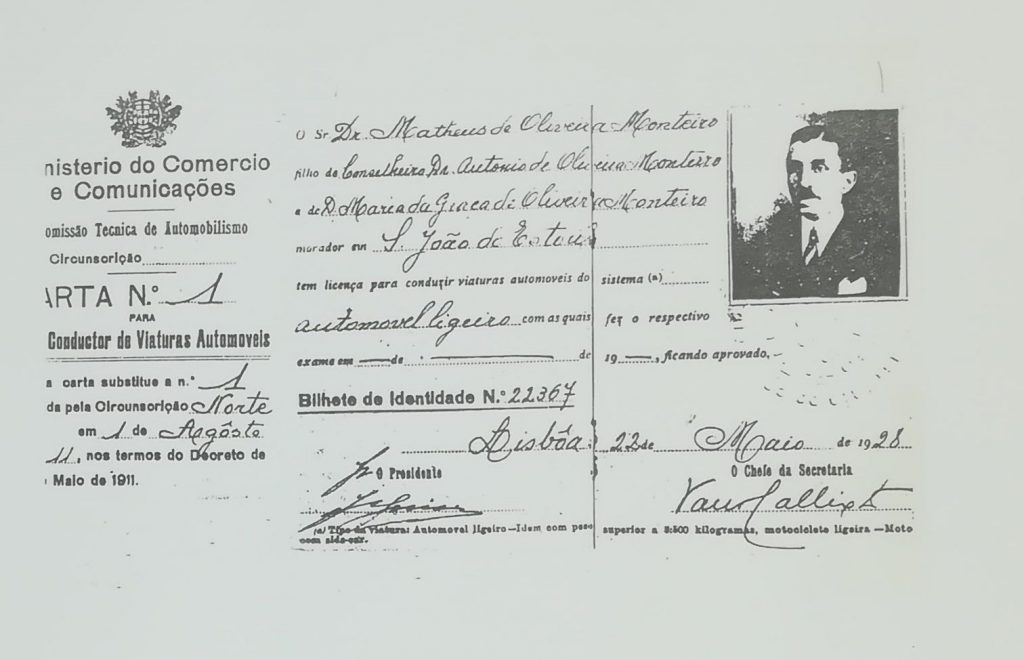 nisterio do Comercio
e Comunicações
omissão Tecnica de Automobilismo
Circunscrição
ARTA N.º 1
PARA
Conductor de Viaturas Automoveis
a carta substitue a n.º 1
da pela Circunscrição Norte
em 1 de Agôsto
11, nos termos do Decreto de
Maio de 1911.
O Sr Dr. Matheus de Oliveira Monteiro
filho de Conselheiro Dr. Antonio de Oliveira Monteiro
e de D. Maria da Graça de Oliveira Monteiro
morador em S. João do Estoril
tem licença para conduzir viaturas automoveis do sistema (a)
automovel ligeiro com as quais fez o respectivo
exame em — de — de 19 —, ficando aprovado.
Bilhete de Identidade N.º 22367
Lisbôa, 22 de Maio de 1928
O Presidente
O Chefe da Secretaria
(a) Tipo da viatura: Automovel ligeiro—Idem com peso superior a 3:500 kilogramas, motociclete ligeira—Moto
com side-car.